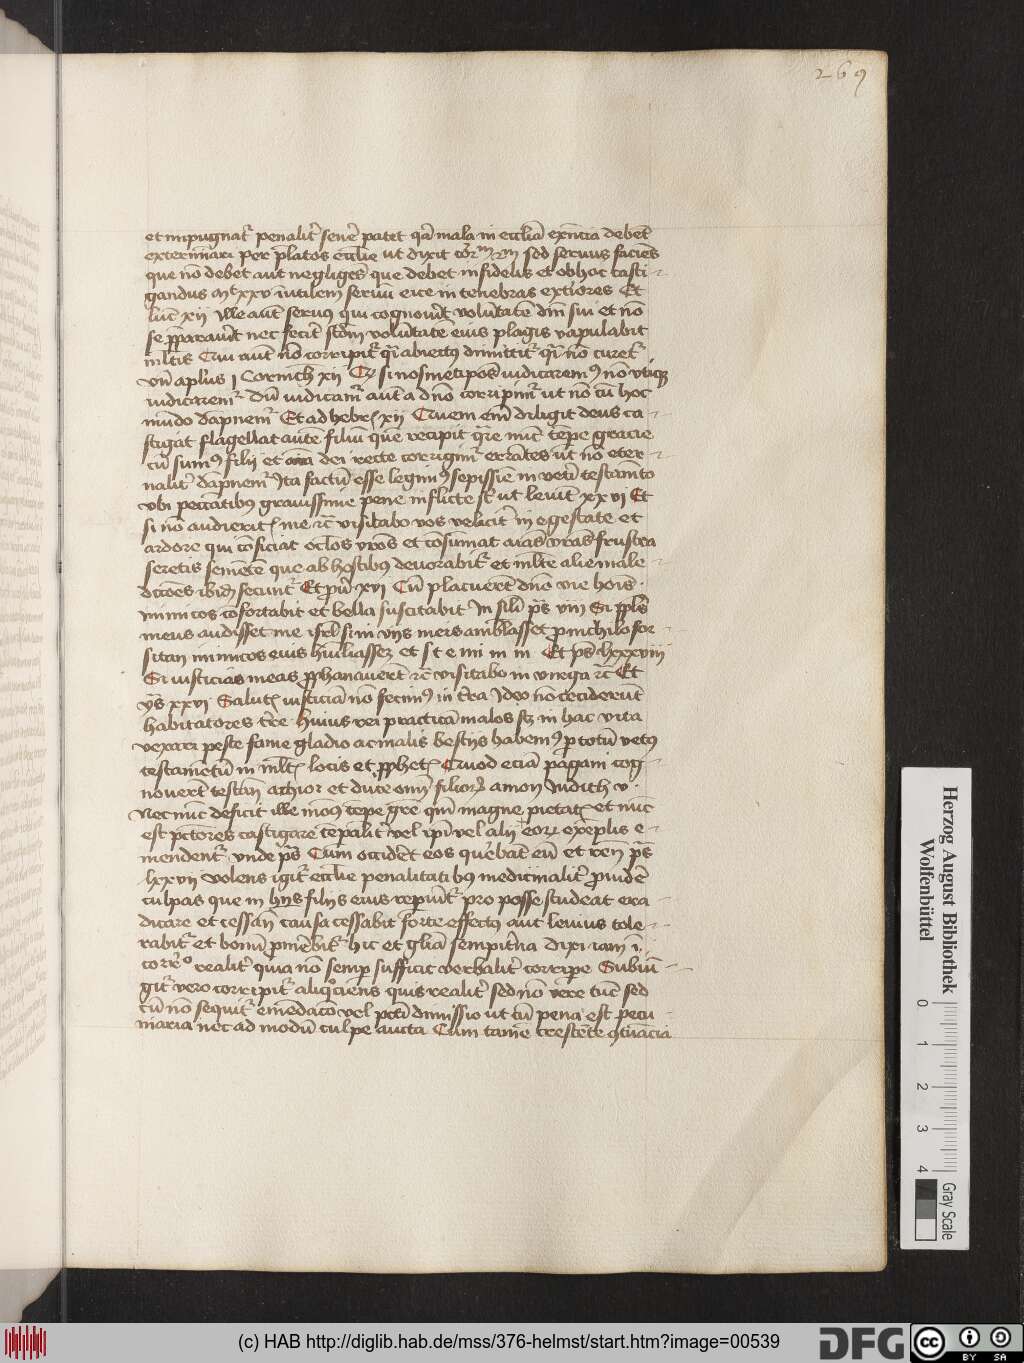 269
et impugnat᷑ penalit᷑ seuē patet qᷓ mala in eccliā exn̄cia debēt
exterminari per p̄latos ecclīe ut dixit sed seruus faciēs
que nō debet aut negliges que debet infidelis et ob hoc casti
gandus Mᵗ xxv inutilem seruū eice in tenebras extiores Et
luc̄ xii Ille aut̄ seruus qui cognouit volūtatē dn̄i sui et nō
se p̄parauit nec fecit scd̄m volūtatē eius plagis vapulabit
ml̄tis Cui aut̄ nō corripit᷑ qͣ abiectus dimittit᷑ qͣ nō curet᷑
vn̄ apl̄us i Corinth xii Qd si nosmetipos iudicarem9 no vtiqꝫ
iudicarem᷑ Dū iudicam᷑ aut̄ a dn̄o corripim᷑ ut nō cū hoc
mūdo dāpnem᷑ Et ad hebr xii Quem em̄ diligit deus ca
stigat flagellat autē filiū quē recipit qͣre nūc tēpe gracie
cū sum9 filii et dei recte corrigim᷑ errātes ut nō eter
nalit᷑ dāpnem᷑ Ita factū esse legim9 sepissīe in veti testamēto
vbi peccatibus grauissime pene inflicte st̄ ut leuit xxvi Et
si nō audierit me &c visitabo vos velocit᷑ in egestate et
ardore qui cōficiat oclos vr̄os et cōsumat aīas vr̄as frustra
seretis semētē que ab hostibus deuorabit᷑ et ml̄te alie male
dictiōēs ibidē secunt᷑ Et xvi Cū placuerēt dn̄o vie hoīs
inimicos cōfortabit et bella suscitabit In sili ps̄ viii Si ppl̄s
meus audisset me isrl̄ si in viis meis ambl̄asset p nichilo for
sitan inimicos eius hūiliassē et s t e m m m Et ps̄ lxxxviii
Si iusticias meas pphanauerēt &c visitabo in virga &c Et
ys̄ xxvi Salutē iusticiā nō fecim9 in tr̄a Ideo nō ceciderūt
habitatores tr̄e huius rei practicā malos scꝫ in hac vita
vexari peste fame gladio ac malis bestiis habem9 p totū vetus
testamētū in ml̄t locis et pphet Quod eciā pagani cog
nouerūt testān achior et dute oīm filior amon Iudith v
Nec nūc deficit ille mos tēpe grē qm̄ magne pietat et nūc
est pctores castigare tēpalit᷑ vel ip̄i vel alii eorū exēplis e
mendent᷑ vnde ps̄ Cum occidēt eos querebāt eū et rēn ps̄
lxxvii volens igit᷑ ecclīe penalitatibus medicinalit᷑ prouidē
culpas que in hn̄s filiis eius reperiūt᷑ pro posse studeat era
dicare et cessan̄ causa cessabit forte effectus aut leuius tole
rabit᷑ et bonū pmebit᷑ hic et gl̄iā sempit̄na dixi iam i
corrēᵒ realit᷑ quia nō semp sufficit verbalit᷑ corripe Subiū
git᷑ vero corripit᷑ aliqͦciens quis realit᷑ sed nō vere tūc sed
cū nō sequit᷑ emēdatō vel pcti dimissio ut cū pena est pecu
niaria nec ad modū culpe aucta Cum tamē crescēte cōtuācia
Herzog August Bibliothek
Wolfenbüttel
0 1 2 3 4
Gray Scale
(c) HAB http://diglib.hab.de/mss/376-helmst/start.htm?image=00539
DFG
cc BY SA